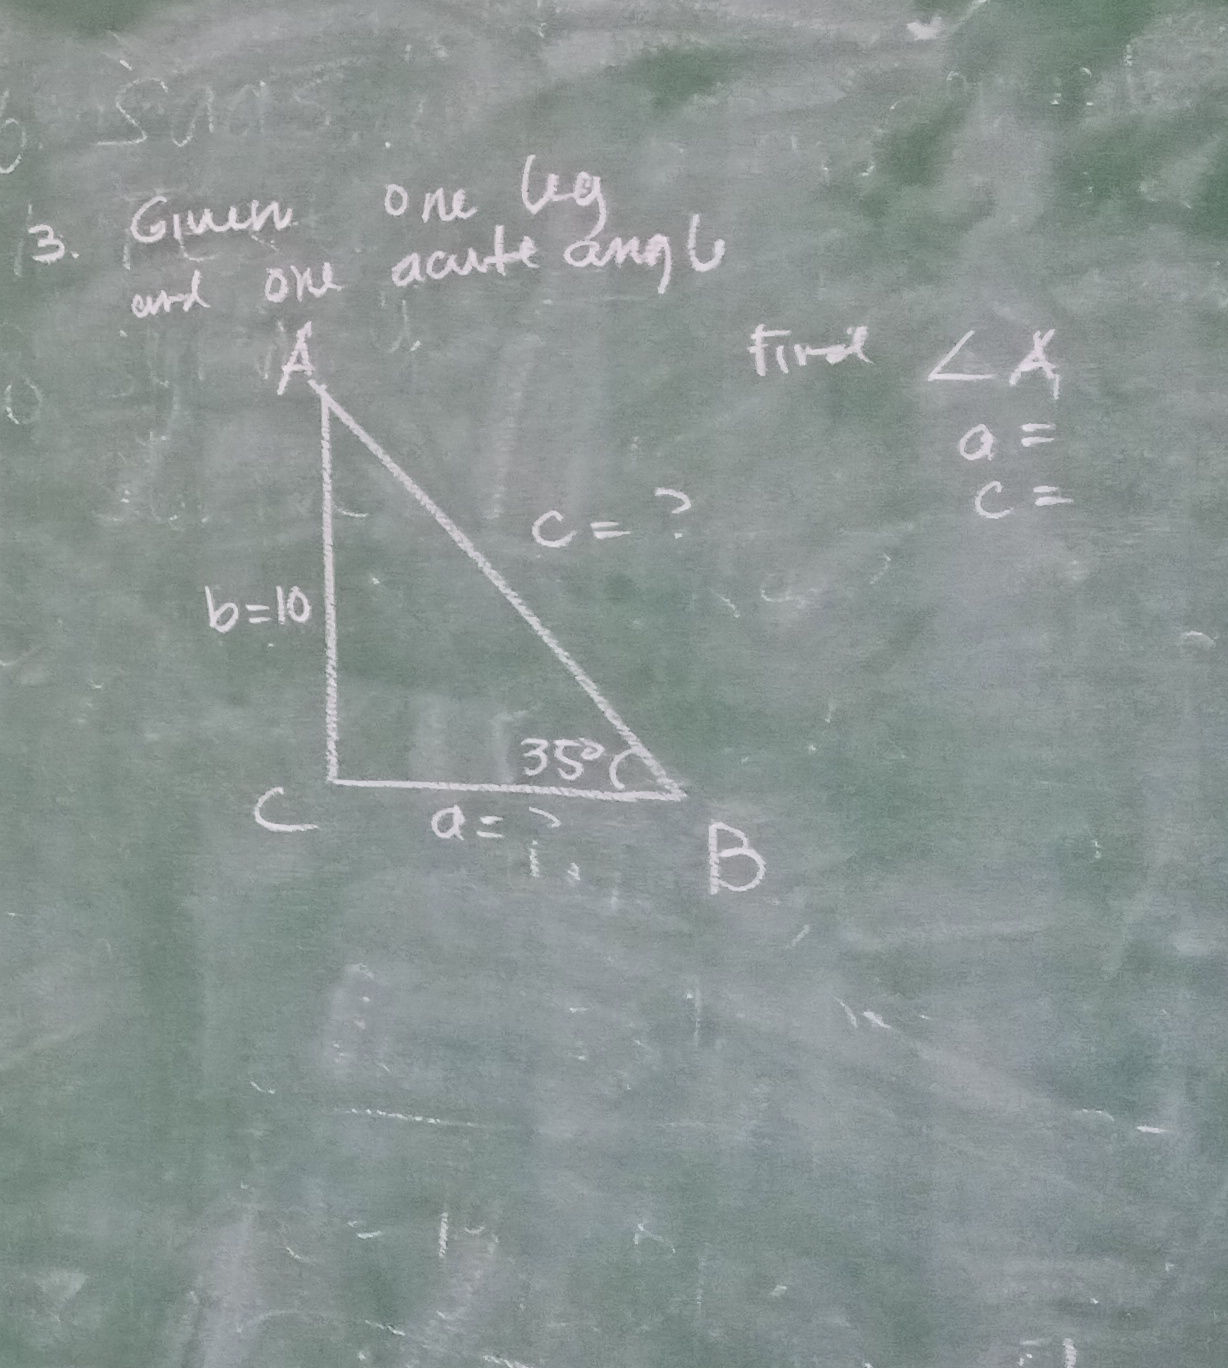 3. Given one leg
and one acute angle
Find ∠A,
a =
c =
A
c = ?
b=10
35°
C
a = ?
B